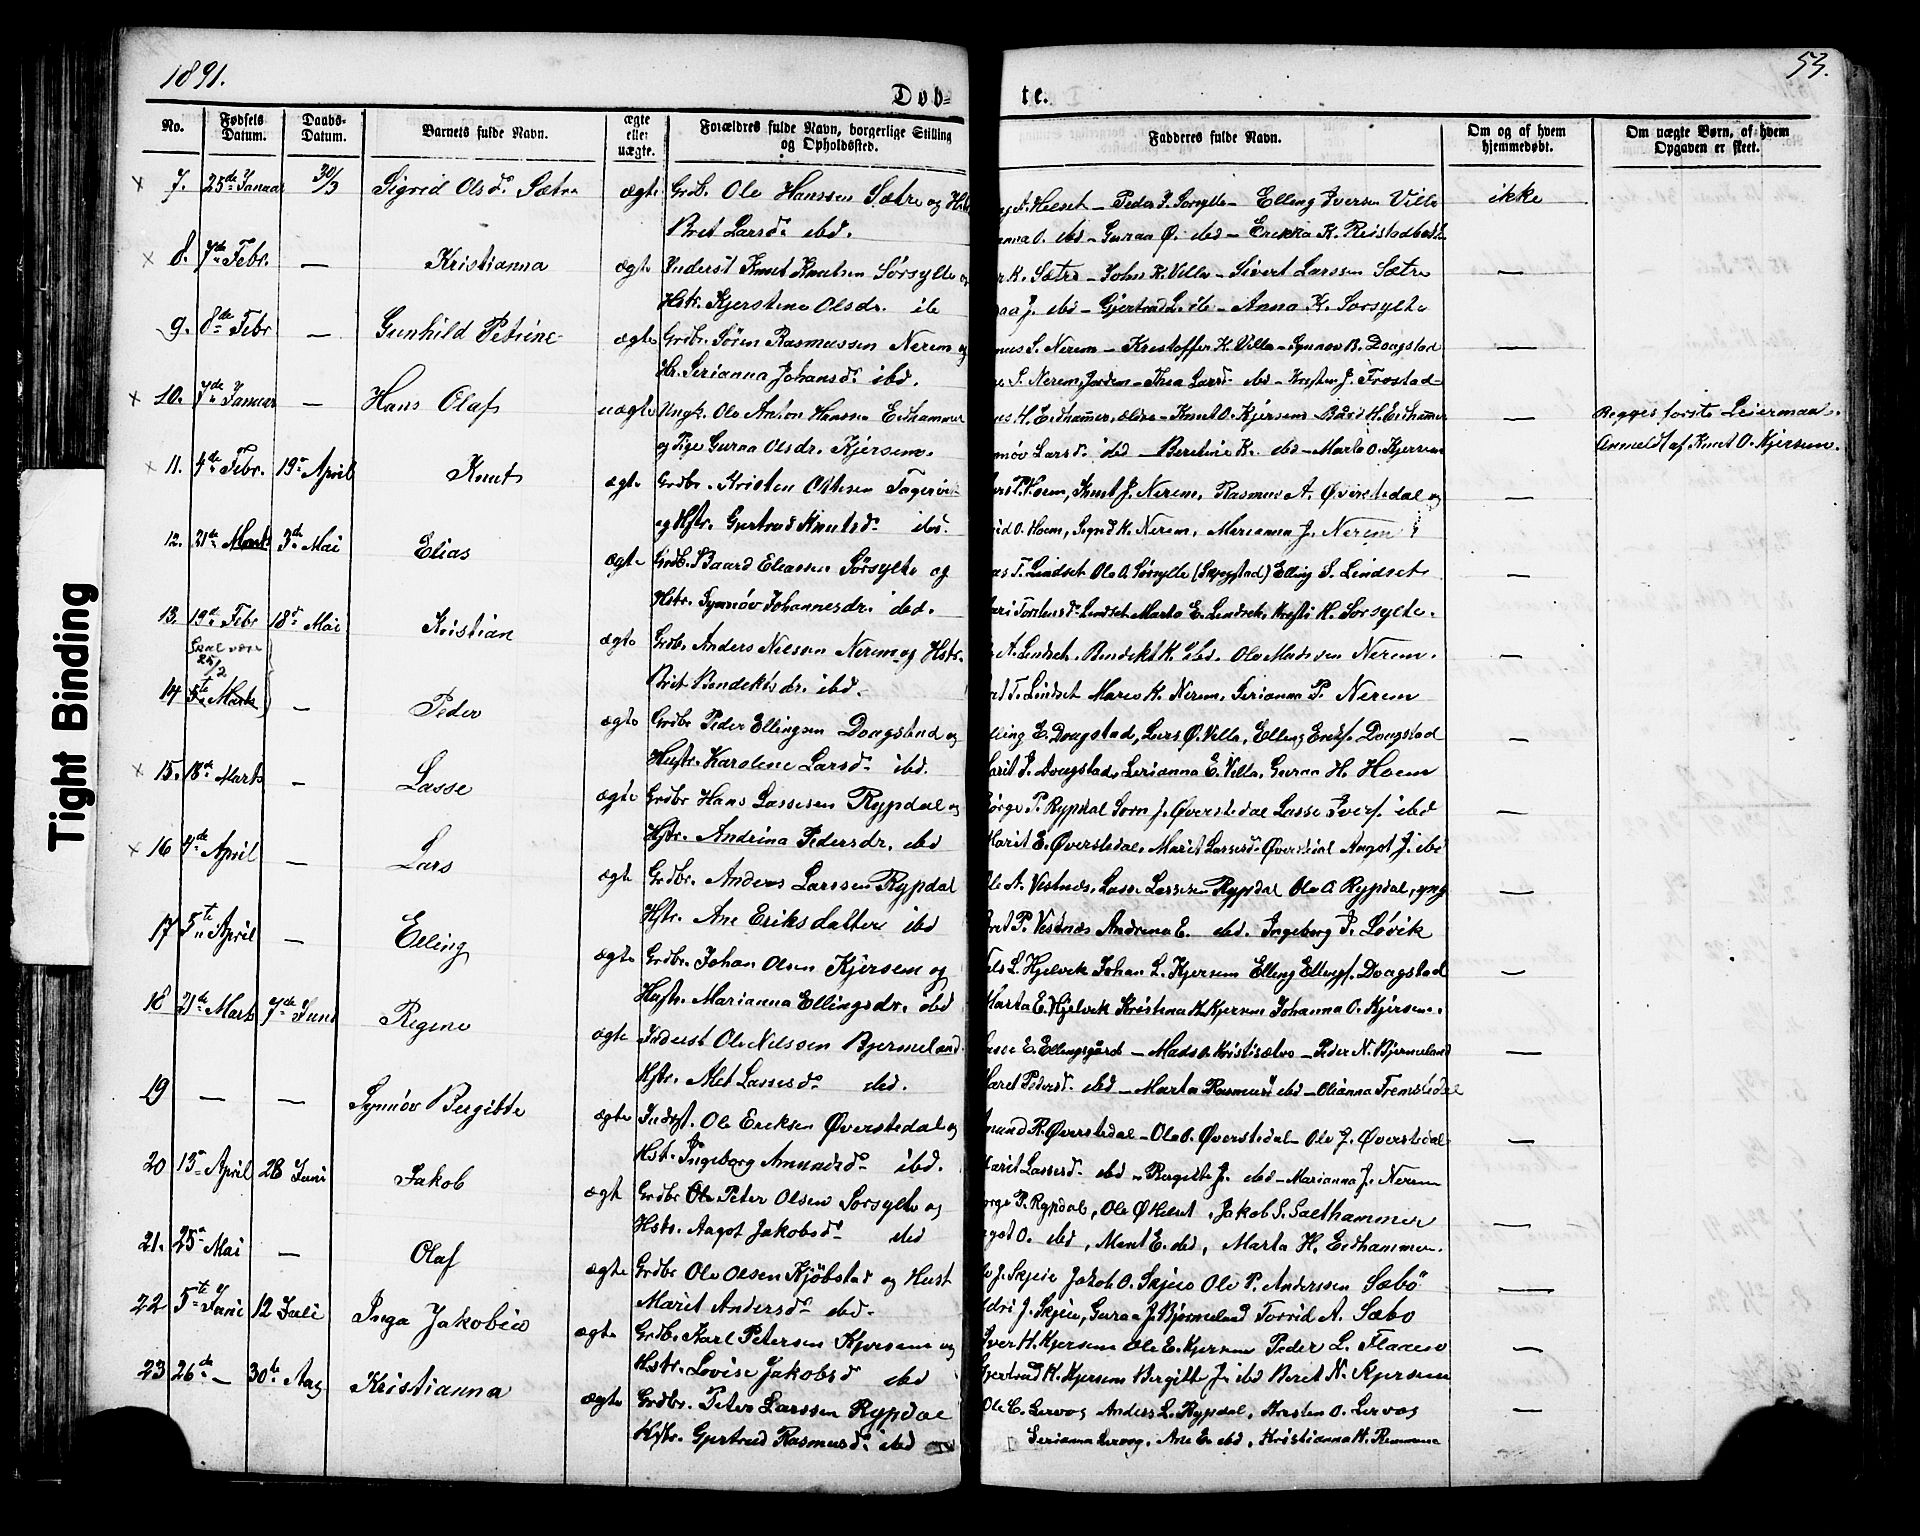 1891.
53.
Døb-
te.
No.
Fødsels Datum.
Daabs-Datum.
Barnets fulde Navn.
ægte eller uægte.
Forældres fulde Navn, borgerlige Stilling og Opholdssted.
Fadderes fulde Navn.
Om og af hvem hjemmedøbt.
Om uægte Børn, af hvem Opgaven er skeet.
7. 25de Januar 30/3 Sigrid Olsd. Sætre ægte Grdb. Ole Hanssen Sætre og Hst
Brit Larsd. ibd.
A. Helset - Peder J. Sorsylte - Elling Iversen Villa ikke
O. ibd - Guraa Ø. ibd - Erikka K.
8. 7de Febr. — Kristianna ægte Inderst Knut Knutsen Sørsylte og
Hstr. Kjerstene Olsdr. ib
K. Sætre - John K. Villa - Sivert Larssen Sætre —
J. ibd - Gjertrud L. ib - Anna K. Sorsylte
9. 8de Febr — Gunhild Petrine ægte Grdbr. Søren Rasmussen Nerem og
Hr. Serianna Johansd. ibd.
S. Nerem - Kristoffer K. Villa - Synnøv B. Daagstad —
S. Nerem, Jordem - Thea Larsd. ibd - Kristen J. Frostad
10. 7de Januar — Hans Olaf uægte Ungk. Ole Anton Hanssen Eidhammer
og Pige Guraa Olsdr. Kjersem.
H. Eidhammer, Oline - Knut O. Kjersem - Bård H. Eidhammer —
Larsd. ibd - Beretine K. ibd - Marte O. Kjersem
Begges første Leiermaal.
Anmeldt af Knut O. Kjersem.
11. 4de Febr. 19de April Knut ægte Grdbr. Kristen Ottesen Fagervik
og Hstr. Gjertrud Knutsd. ibd.
P. Hoem, Knut J. Nerem, Rasmus A. Øverstedal og —
O. Hoem, Signe K. Nerem, Marianna J. Nerem
12. 21de Marts 3de Mai Elias ægte Grdb. Baard Eliassen Sørsylte og
Hstr. Synnøv Johannesdr. ibd.
T. Lindset Ole A. Sørsylte (Skogstad) Elling S. Lindset —
Torstensd. Lindset Marta E. Lindset, Kristi H. Sorsylte.
13. 19de Febr 18d Mai Kristian ægte Grdb. Anders Nilsen Nerem og Hstr.
Skal være 25/2
Brit Bendeksdr. ibd.
A. Lindset. Bendikt K. ibd. Ole Madssen Nerem. —
T. Lindset Maren K. Nerem, Serianna P. Nerem
14 5te Marts — Peder ægte Grdbr Peder Ellingsen Daagstad og
Hustr. Karoline Larsd. ibd.
E. Daagstad, Lars Ø. Villa, Elling Eriks. Daagstad —
Marit P. Daagstad, Serianna E. Villa, Guraa H. Hoem
15. 18de Marts — Lasse ægte Grdbr Hans Lassesen Rypdal og
Hstr. Andrina Pedersdr. ibd
Børge P. Rypdal Sorn J. Øverstedal Lasse Ivers. ibd —
Marit E. Øverstedal, Marit Lassesd. Øverstedal Angot J. ibd
16 4de April — Lars ægte Grdbr. Anders Larssen Rypdal
Hstr. Ane Eriksdatter ibd
Ole A. Vestnes, Lasse Lassesen Rypdal Ole O. Rypdal, yng —
P. Vestnes Andrina E. ibd. Ingeborg P. Løvik
17 5te April — Elling ægte Grdbr. Johan Olsen Kjersem og
Hustr. Marianna Ellingsdr. ibd
L. Hjelvik Johan L. Kjersem Elling Ellings. Daagstad —
Marta E. Hjelvik Kristina K. Kjersem Johanna O. Kjersem.
18 21de Marts 7de Juni Regine ægte Inderst Ole Nilssen Bjermeland
Hstr. Alet Lassesd. ibd.
Lasse E. Ellingsgård - Mads O. Kristisæter - Peder N. Bjermeland —
Maret Pedersd. ibd - Marta Rasmusd ibd - Olianna Fremstedal
19 — — Synnøv Bergitte ægte Inderst. Ole Eriksen Øverstedal og
Hst. Ingeborg Amundsd. ibd.
Amund R. Øverstedal - Ole O. Øverstedal - Ole J. Øverstedal —
Marit Lassesd. ibd - Bergitte J. ibd - Marianna J. Nerem
20 13de April 28 Juni Jakob ægte Grdbr Ole Peter Olsen Sorsylte og
Hstr. Aagot Jakobsd. ibd
P. Rypdal, Ole Ø Helset, Jakob S. Salthammer —
O. ibd, Marit E. ibd, Marta H. Eidhammer.
21. 25de Mai — Olaf ægte Grdbr Ole Olsen Kjøbstad og Hust
Marit Andersd. ibd.
J. Skjeie Jakob O. Skjeie Ole P. Anderssen Sæbö —
J. Skjeie, Guraa J. Bjermeland Torrid A. Sæbo
22 5te Juni 12 Juli Inga Jakobine ægte Grdb. Karl Petersen Kjersem og
Hstr. Lovise Jakobsd ibd
Iver H. Kjersem Ole E. Kjersem Peder L. Flaaen —
Gjertrud K. Kjersem Bergitte J. ibd Beret N. Kjersem
23 26de — 30te Aug Kristianna ægte Grdbr. Peter Larssen Rypdal
Hstr. Gjertrud Rasmusd. ibd
Ole C. Lervog Anders L. Rypdal, Kristen O. Lervog —
Serianna Lervog, Ane E. ibd, Kristianna H. Remmem
Tight Binding